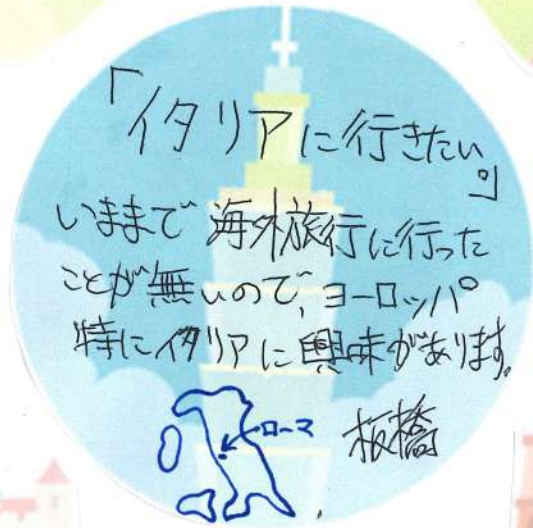 「イタリアに行きたい。」
いままで海外旅行に行った
ことが無いので、ヨーロッパ
特にイタリアに興味があります。
ローマ
板橋